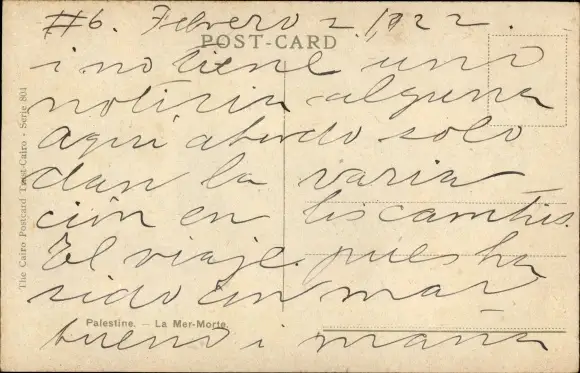 #6. Febrero 2. 1922.
POST-CARD
i no tiene uno
noticia alguna
aqui abordo solo
dan la varia_
ción en los cambios.
El viaje pues ha
sido un mar
bueno i maña
Palestine. — La Mer-Morte.
The Cairo Postcard Trust-Cairo - Serie 804